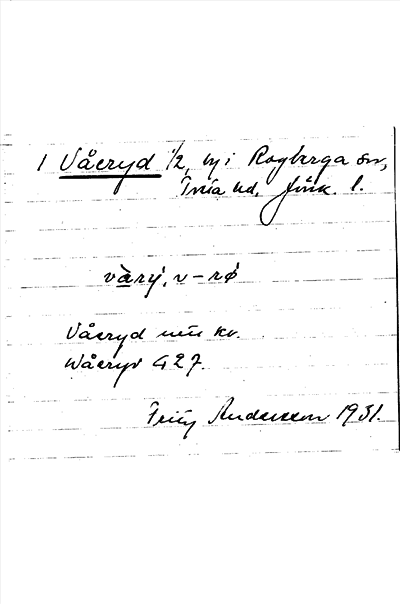 1 Våcryd 1/2, by i Rogberga sn,
Tveta hd, Jönk. l.
vàry̆, v – rø
Våcryd
Wåcryd G 27.
Fritz Andersson 1931.